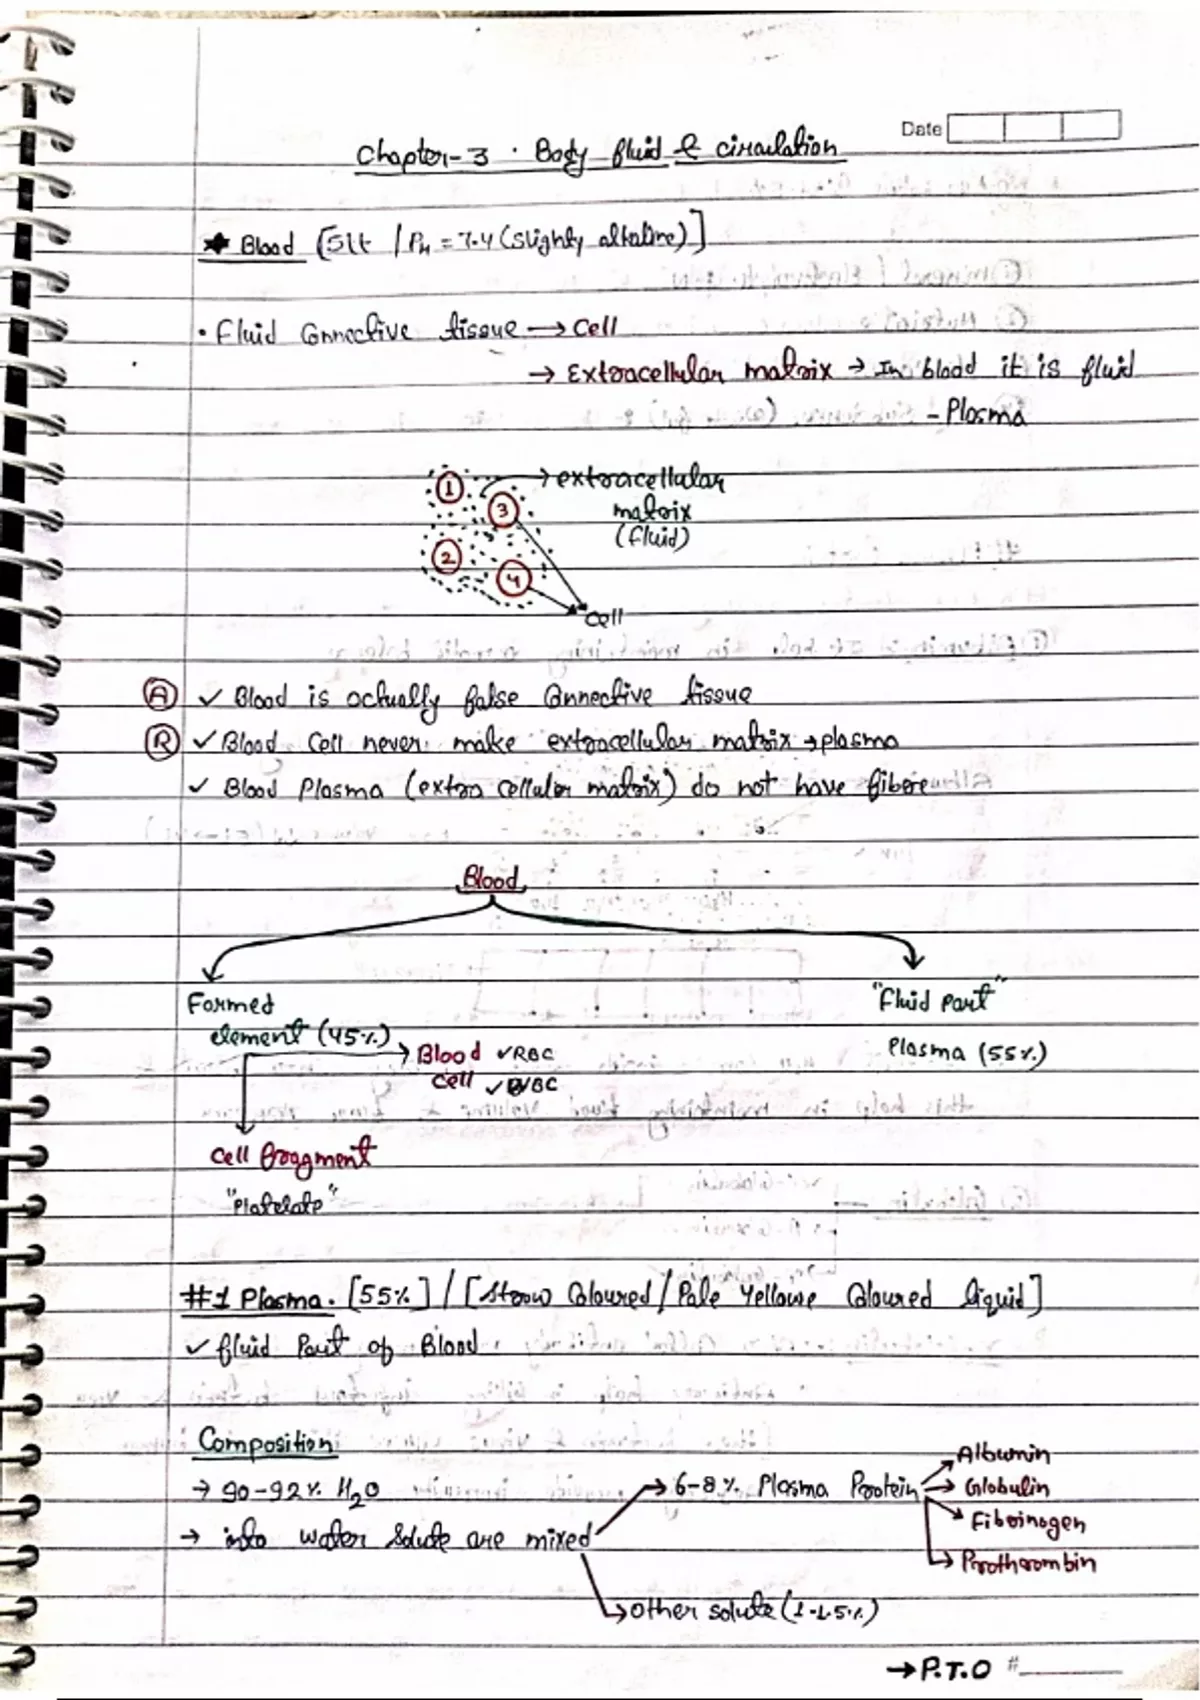 Date
Chapter-3 · Body fluid & circulation
* Blood [5lt / PH = 7.4 (slighty alkaline)]
· Fluid Connective tissue → Cell
→ Extracellular matrix → In blood it is fluid
- Plasma
1 → extracellular
3 matrix
(fluid)
2
4
cell
(A) ✓ Blood is actually false Connective tissue
(R) ✓ Blood Cell never make extracellular matrix → plasma
✓ Blood Plasma (extra cellular matrix) do not have fibere
Blood
Formed "Fluid part"
element (45%) Plasma (55%)
→ Blood ✓ RBC
Cell ✓ WBC
Cell fragment
"Platelate"
#1 Plasma. [55%] / [Straw Coloured / Pale Yellowe Coloured liquid]
✓ fluid Part of Blood
Composition
→ 90-92% H2O → 6-8% Plasma Protein → Albumin
→ Globulin
→ Fibrinogen
→ Prothrombin
→ into water solute are mixed
→ Other solute (1-1.5%)
→ P.T.O #